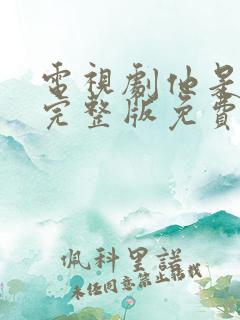 電視劇他是
完整版免費
佩科里諾
未任同意禁止轉載